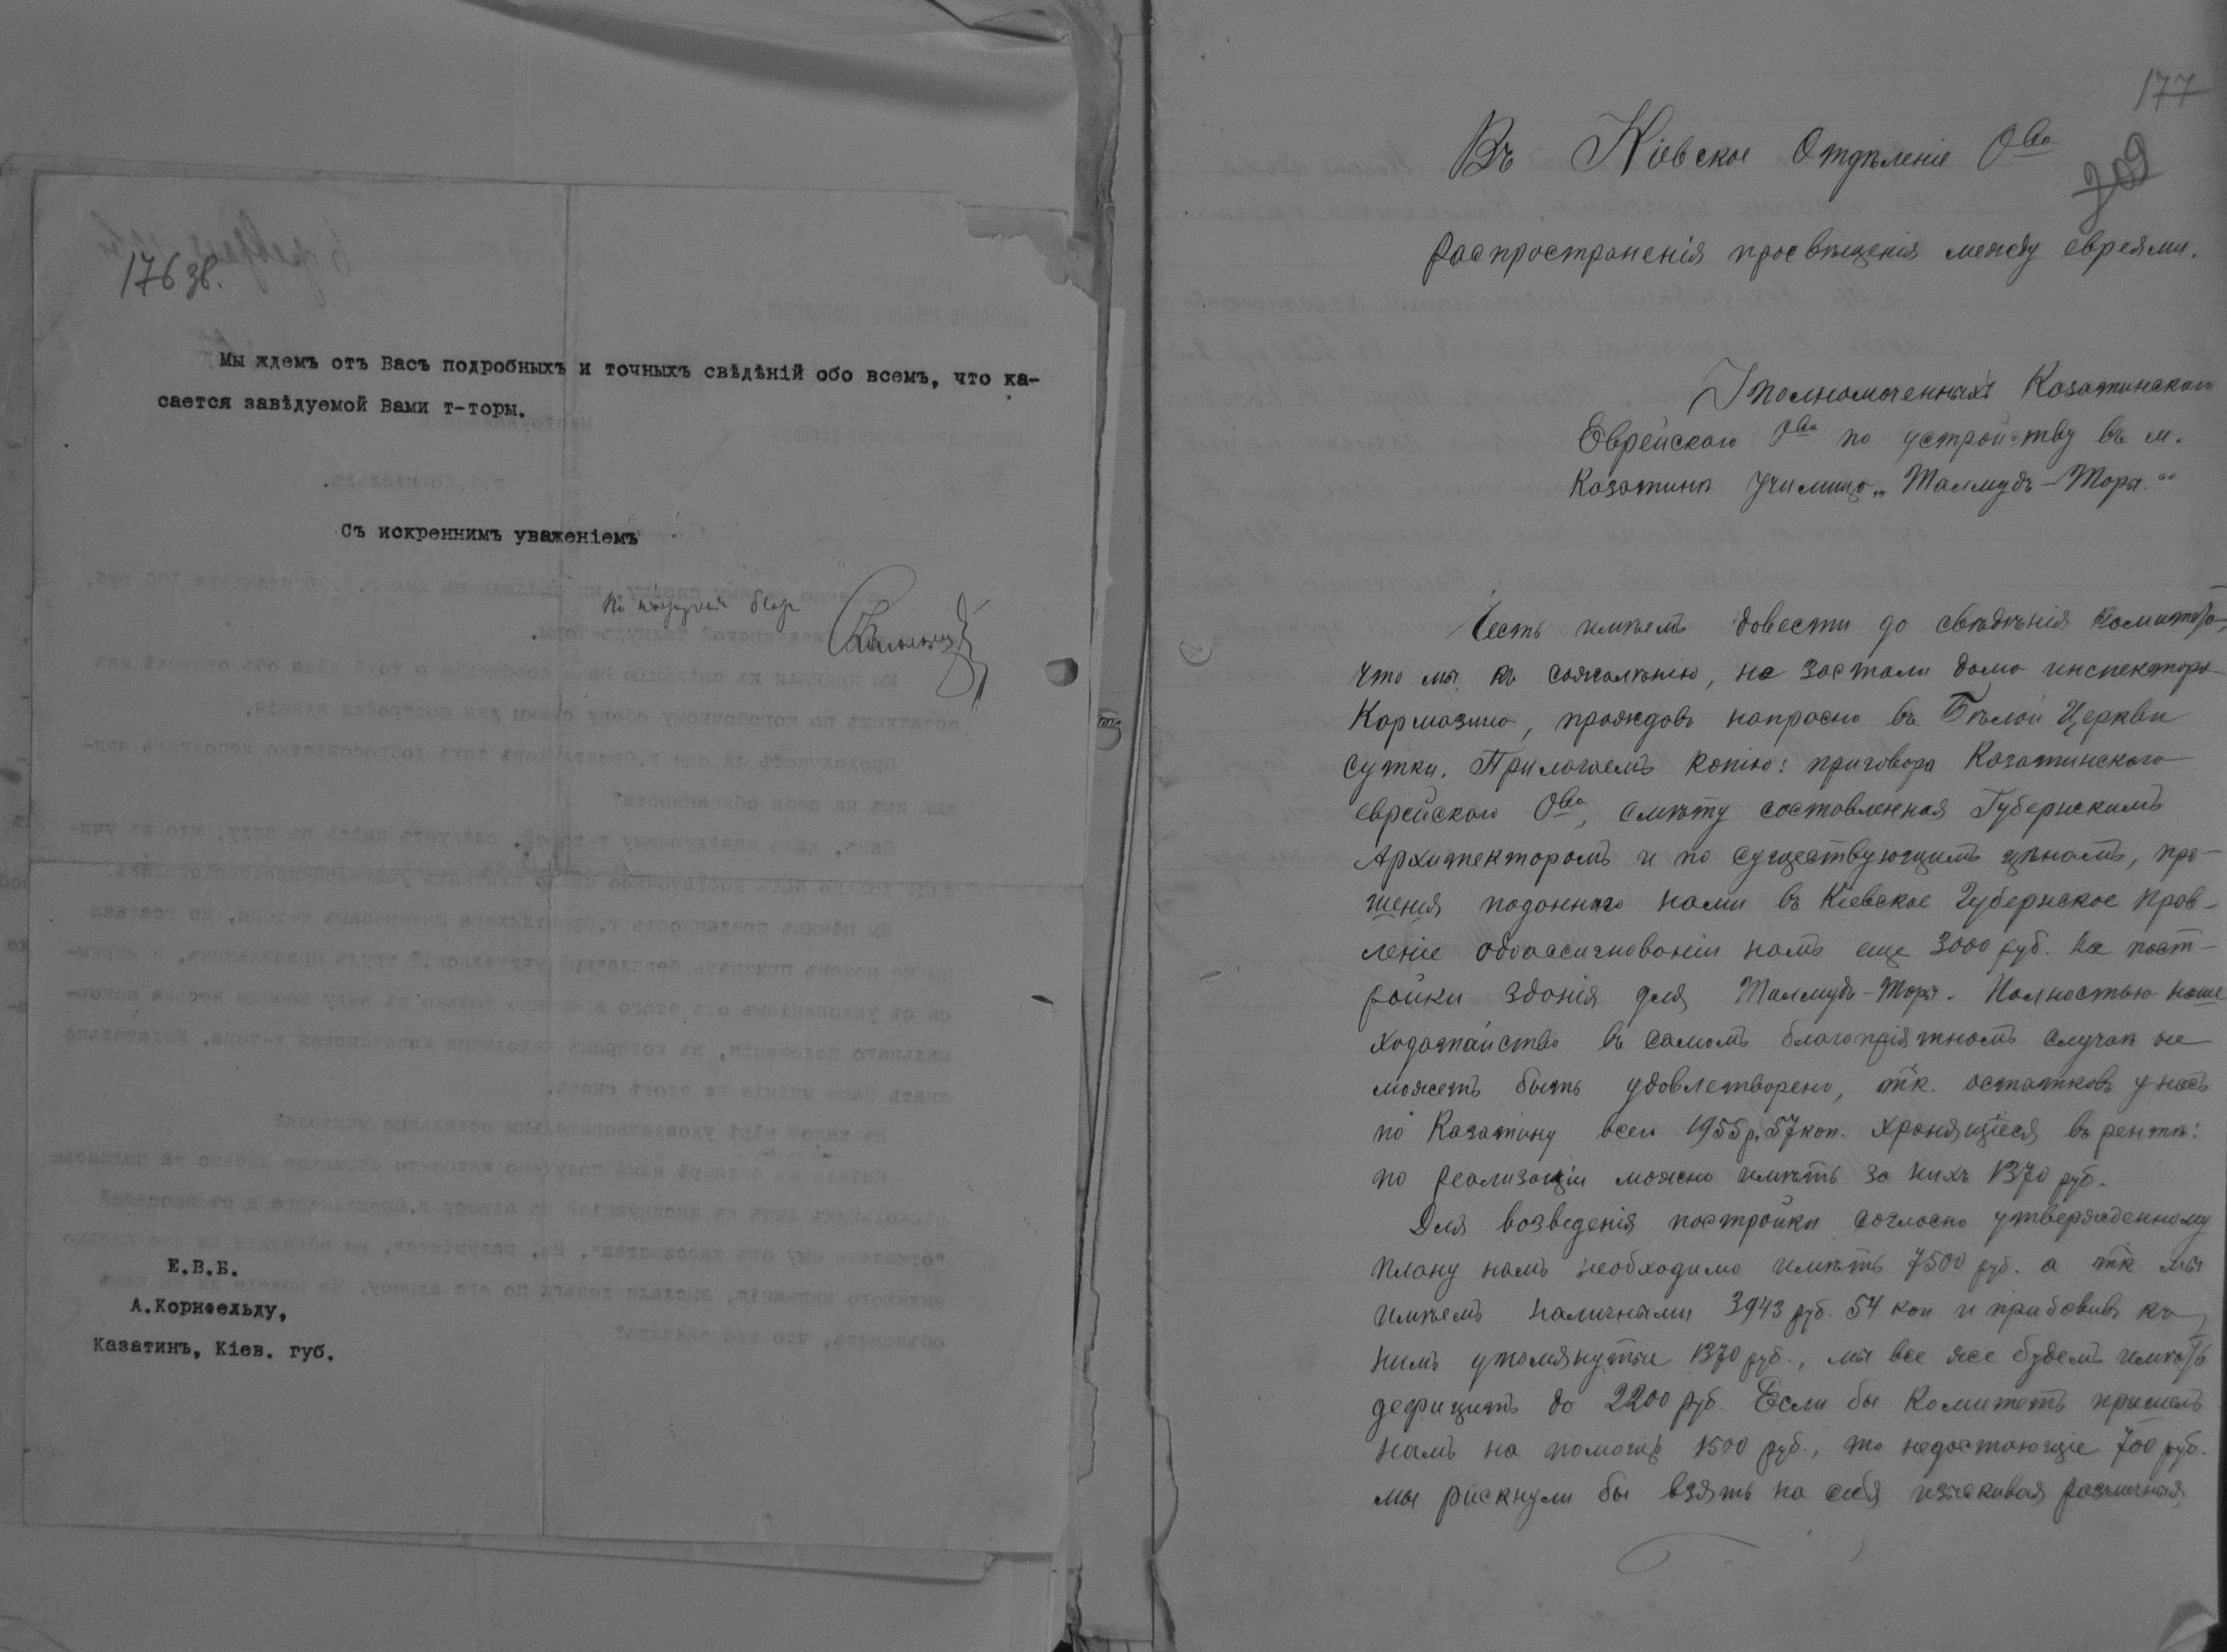 176 зв.
Мы ждемъ отъ Васъ подробныхъ и точныхъ свѣдѣній обо всемъ, что ка-
сается завѣдуемой Вами т-торы.
Съ искреннимъ уваженіемъ
Е.В.Б.
А.Корнфельду,
Казатинъ, Кіев. губ.
177
209
Въ Кіевское Отдѣленіе О-ва
распространенія просвѣщенія между евреями.
Уполномоченныхъ Казатинскаго
Еврейскаго О-ва по устройству въ м.
Казатинѣ училища „Талмудъ-Тора“
Честь имѣемъ довести до свѣдѣнія Комитета,
что мы, къ сожалѣнію, не застали дома инспектора
Кармазина, прождавъ напрасно въ Бѣлой Церкви
сутки. Прилагаемъ копію: приговора Казатинскаго
еврейскаго О-ва, смѣту составленная Губернскимъ
Архитекторомъ и по существующимъ цѣнамъ, про-
шенія поданнаго нами въ Кіевское Губернское Прав-
леніе объ ассигнованіи намъ еще 3000 руб. на пост-
ройки зданія для Талмудъ-Торы. Полностью наше
ходатайство въ самомъ благопріятномъ случаѣ не
можетъ быть удовлетворено, т.к. остатковъ у насъ
по Казатину всего 1955 р. 57 коп. хранящіеся въ рентѣ:
по реализаціи можно имѣть за нихъ 1370 руб.
Для возведенія постройки согласно утвержденному
плану намъ необходимо имѣть 7500 руб. а т.к мы
имѣемъ наличными 3943 руб. 54 коп и прибавивъ къ
нимъ упомянутые 1370 руб., мы все же будемъ имѣть
дефицитъ до 2200 руб. Если бы Комитетъ пришелъ
намъ на помощь 1500 руб., то недостающіе 700 руб.
мы рискнули бы взять на себя изыскивая различныя